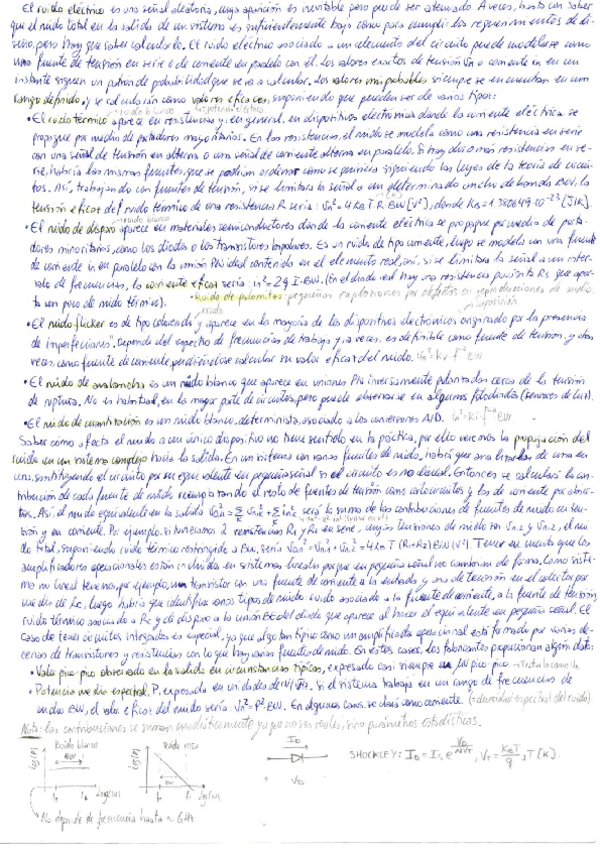 El ruido eléctrico es una señal aleatoria, cuya aparición es inevitable pero puede ser atenuado. A veces, basta con saber
que el ruido total en la salida de un sistema es suficientemente bajo como para cumplir los requerimientos de di-
seño, pero hay que saber calcularlo. El ruido eléctrico asociado a un elemento del circuito puede modelarse como
una fuente de tensión en serie o de corriente en paralelo con él. Los valores exactos de tensión Vn o corriente in en un
instante siguen un patrón de probabilidad que se va a calcular. Los valores más probables siempre se encuentran en un
rango definido, y se calcularán como valores eficaces, suponiendo que pueden ser de varios tipos:
ruido blanco
• El ruido térmico aparece en resistencias y, en general, en dispositivos electrónicos donde la corriente eléctrica se
propague por medio de portadores mayoritarios. En las resistencias, el ruido se modela como una resistencia en serie
con una señal de tensión en alterna o una señal de corriente alterna en paralelo. Si hay dos o más resistencias en se-
rie, habría las mismas fuentes, que se podrían ordenar como se quisiera siguiendo las leyes de la teoría de circui-
tos. Así, trabajando con fuentes de tensión, si se limitara la señal a un determinado ancho de banda BW, la
tensión eficaz del ruido térmico de una resistencia R sería: Vn²=4KBTR BW [V²], donde KB=1.380649·10⁻²³ [J/K].
ruido blanco
• El ruido de disparo aparece en materiales semiconductores donde la corriente eléctrica se propague por medio de porta-
dores minoritarios, como los diodos o los transistores bipolares. Es un ruido de tipo corriente, luego se modela con una fuente
de corriente in en paralelo con la unión PN ideal contenida en el elemento real, así, si se limitara la señal a un inter-
valo de frecuencias, la corriente eficaz sería: in²=2qI·BW. (En el diodo real hay una resistencia parásita Rs que apor-
ta un poco de ruido térmico). • Ruido de palomitas: pequeñas explosiones por defectos en reproducciones de audio.
• El ruido flicker es de tipo coloreado y aparece en la mayoría de los dispositivos electrónicos originado por la presencia
de imperfecciones. Depende del espectro de frecuencias de trabajo y, a veces, es definible como fuente de tensión, y otras
veces como fuente de corriente, pudiéndose calcular su valor eficaz del ruido.
• El ruido de avalancha es un ruido blanco que aparece en uniones PN inversamente polarizadas cerca de la tensión
de ruptura. No es habitual en la mayor parte de circuitos, pero puede observarse en algunos fotodiodos (sensores de luz).
• El ruido de cuantización es un ruido blanco, determinista, asociado a los conversores A/D.
Saber cómo afecta el ruido a un único dispositivo no tiene sentido en la práctica, por ello veremos la propagación del
ruido en un sistema complejo hacia la salida. En un sistema con varias fuentes de ruido, habrá que analizarlas de una en
una, sustituyendo el circuito por su equivalente en pequeña señal si el circuito es no lineal. Entonces se calculará la con-
tribución de cada fuente de ruido reemplazando el resto de fuentes de tensión como cortocircuitos y las de corriente por abier-
tos. Así, el ruido equivalente en la salida será la suma de las contribuciones de fuentes de ruido en ten-
sión y en corriente. Por ejemplo, si tuviéramos 2 resistencias R1 y R2 en serie, cuyas tensiones de ruido son Vn1 y Vn2, el rui-
do total, suponiendo ruido térmico restringido a BW, sería 4KBT(R1+R2)BW [V²]. Tener en cuenta que los
amplificadores operacionales están incluidos en sistemas lineales porque en pequeña señal no cambian de forma. Como siste-
ma no lineal tenemos, por ejemplo, un transistor con una fuente de corriente a la entrada y una de tensión en el colector por
medio de Rc, luego habría que identificar varios tipos de ruido: ruido asociado a la fuente de corriente, a la fuente de tensión,
ruido térmico asociado a Rc y de disparo a la unión BE del diodo que aparece al hacer el equivalente en pequeña señal. El
caso de tener circuitos integrados es especial, ya que algo tan típico como un amplificador operacional está formado por varias de-
cenas de transistores y resistencias con lo que hay varias fuentes de ruido. En estos casos, los fabricantes proporcionan algún dato:
• Valor pico-pico observado en la salida en circunstancias típicas, expresado casi siempre en μV pico-pico.
• Potencia media espectral, P, expresada en unidades de V/√Hz. Si el sistema trabaja en un rango de frecuencias de
ancho BW, el valor eficaz del ruido sería Vn²=P²·BW. En algunos casos, se dará como corriente. (=densidad espectral del ruido).
Nota: las contribuciones se suman cuadráticamente ya que no son reales, sino parámetros estadísticos.
Ruido blanco
Ruido rosa
log(P)
BW
log(P)
ID
VD
SHOCKLEY:
T(K).
No depende de frecuencia hasta ~ GHz